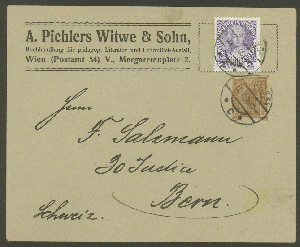 A. Pichlers Witwe & Sohn,
Buchhandlung für pädagog. Literatur und Lehrmittel-Anstalt,
Wien (Postamt 54) V., Margaretenplatz 2.
Herrn
F. Salzmann
Justice
Bern.
Schweiz.